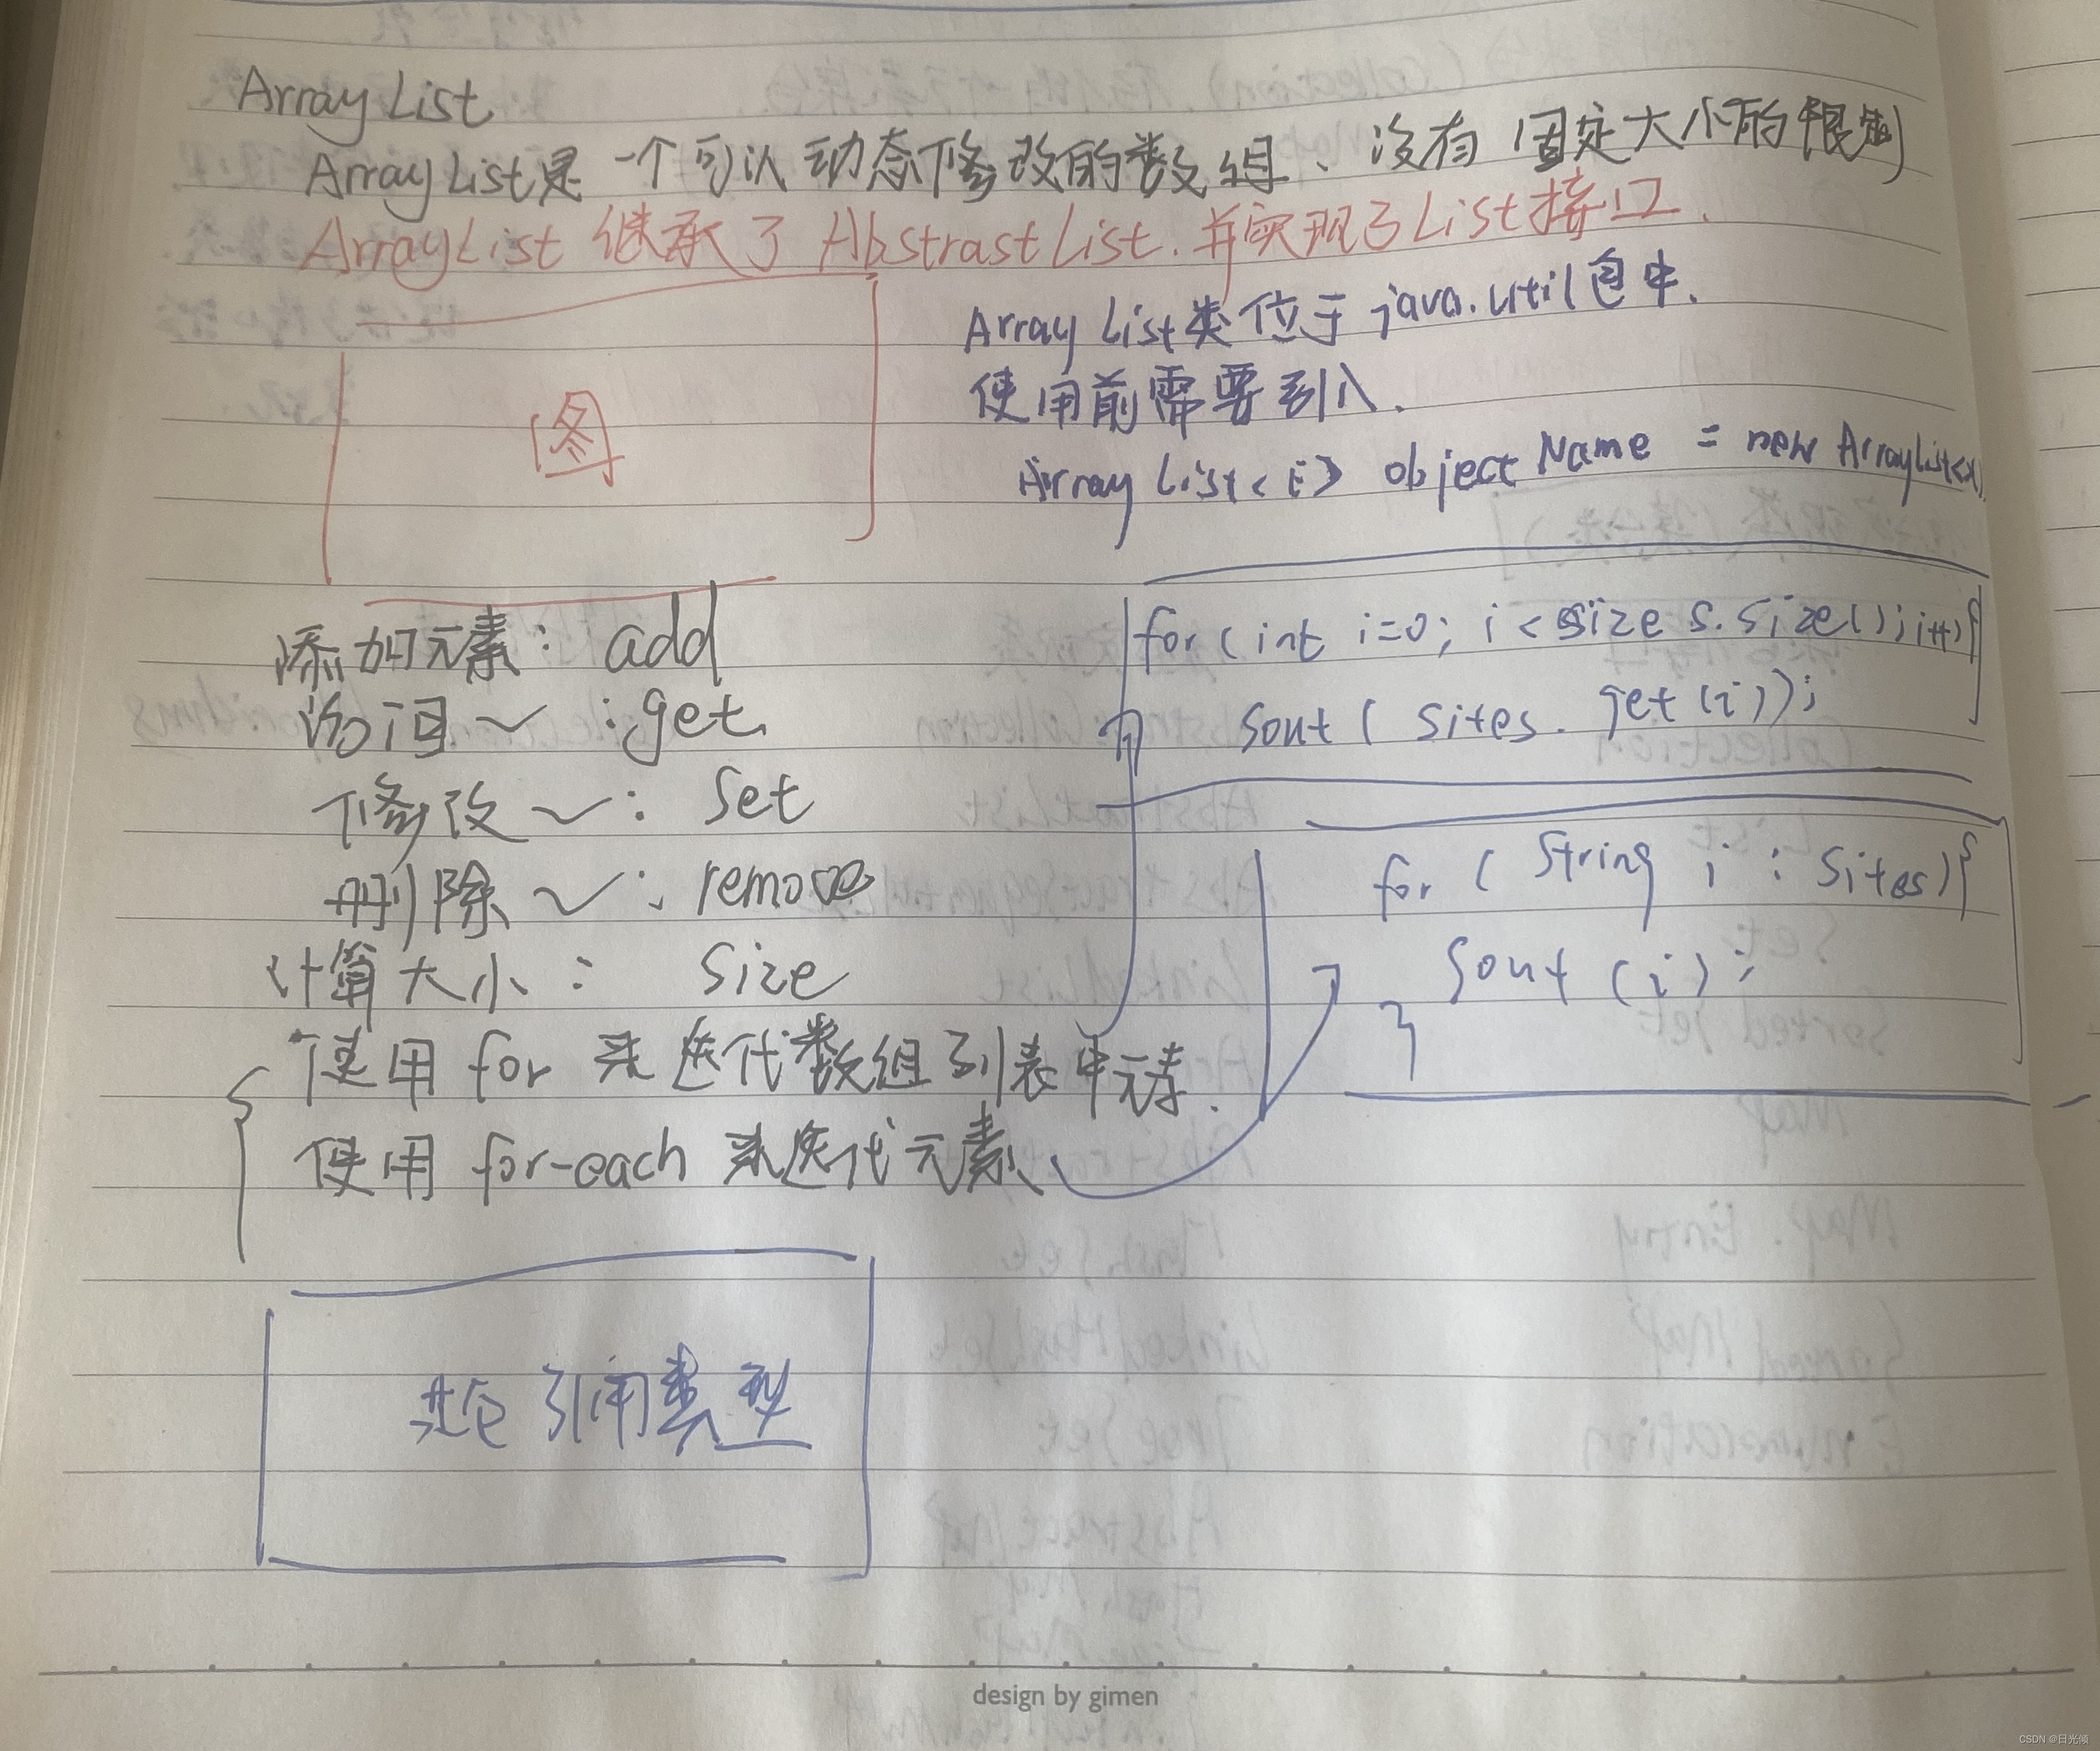 ArrayList
ArrayList是一个可以动态修改的数组、没有固定大小的限制
ArrayList 继承了 AbstrastList.并实现了List接口.
ArrayList类位于java.util包中.
使用前需要引入.
图
ArrayList<E> objectName = new ArrayList<>
添加元素: add
for(int i=0; i< s.size();i++){
访问~:get
sout( sites.get(i));
修改~: set
for ( String i : sites){
删除~: remove
sout (i);
计算大小: size
}
使用 for 来迭代数组列表中元素.
使用 for-each 来迭代元素
引用类型
design by gimen
CSDN @日光倾